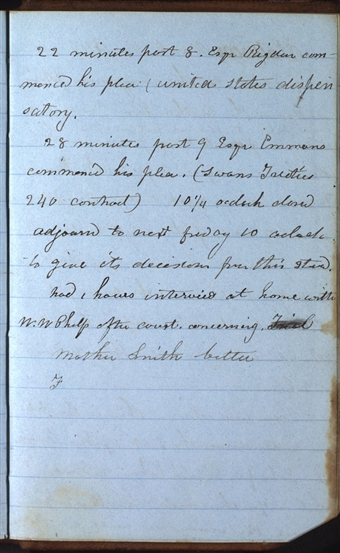 22 minutes past 8. Esqr Rigdon com-
menced his plea (united states dispen
satory.
28 minutes past 9 Esqr Emmons
commenced his plea. (Swans Treties
240 contract) 10 1/4 oclock closed
adjournd to next friday 10 oclock.
to give its decisions for this stud.
had 1 hours interview at home with
W. W Phelps after the court. concerning.
mother Smith better
F